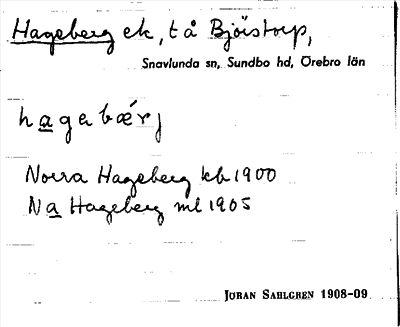 Hageberg ek, t å Björstorp,
Snavlunda sn, Sundbo hd, Örebro län
hagabǽrj
Norra Hageberg kb 1900
Na Hageberg ml 1905
JÖRAN SAHLGREN 1908-09